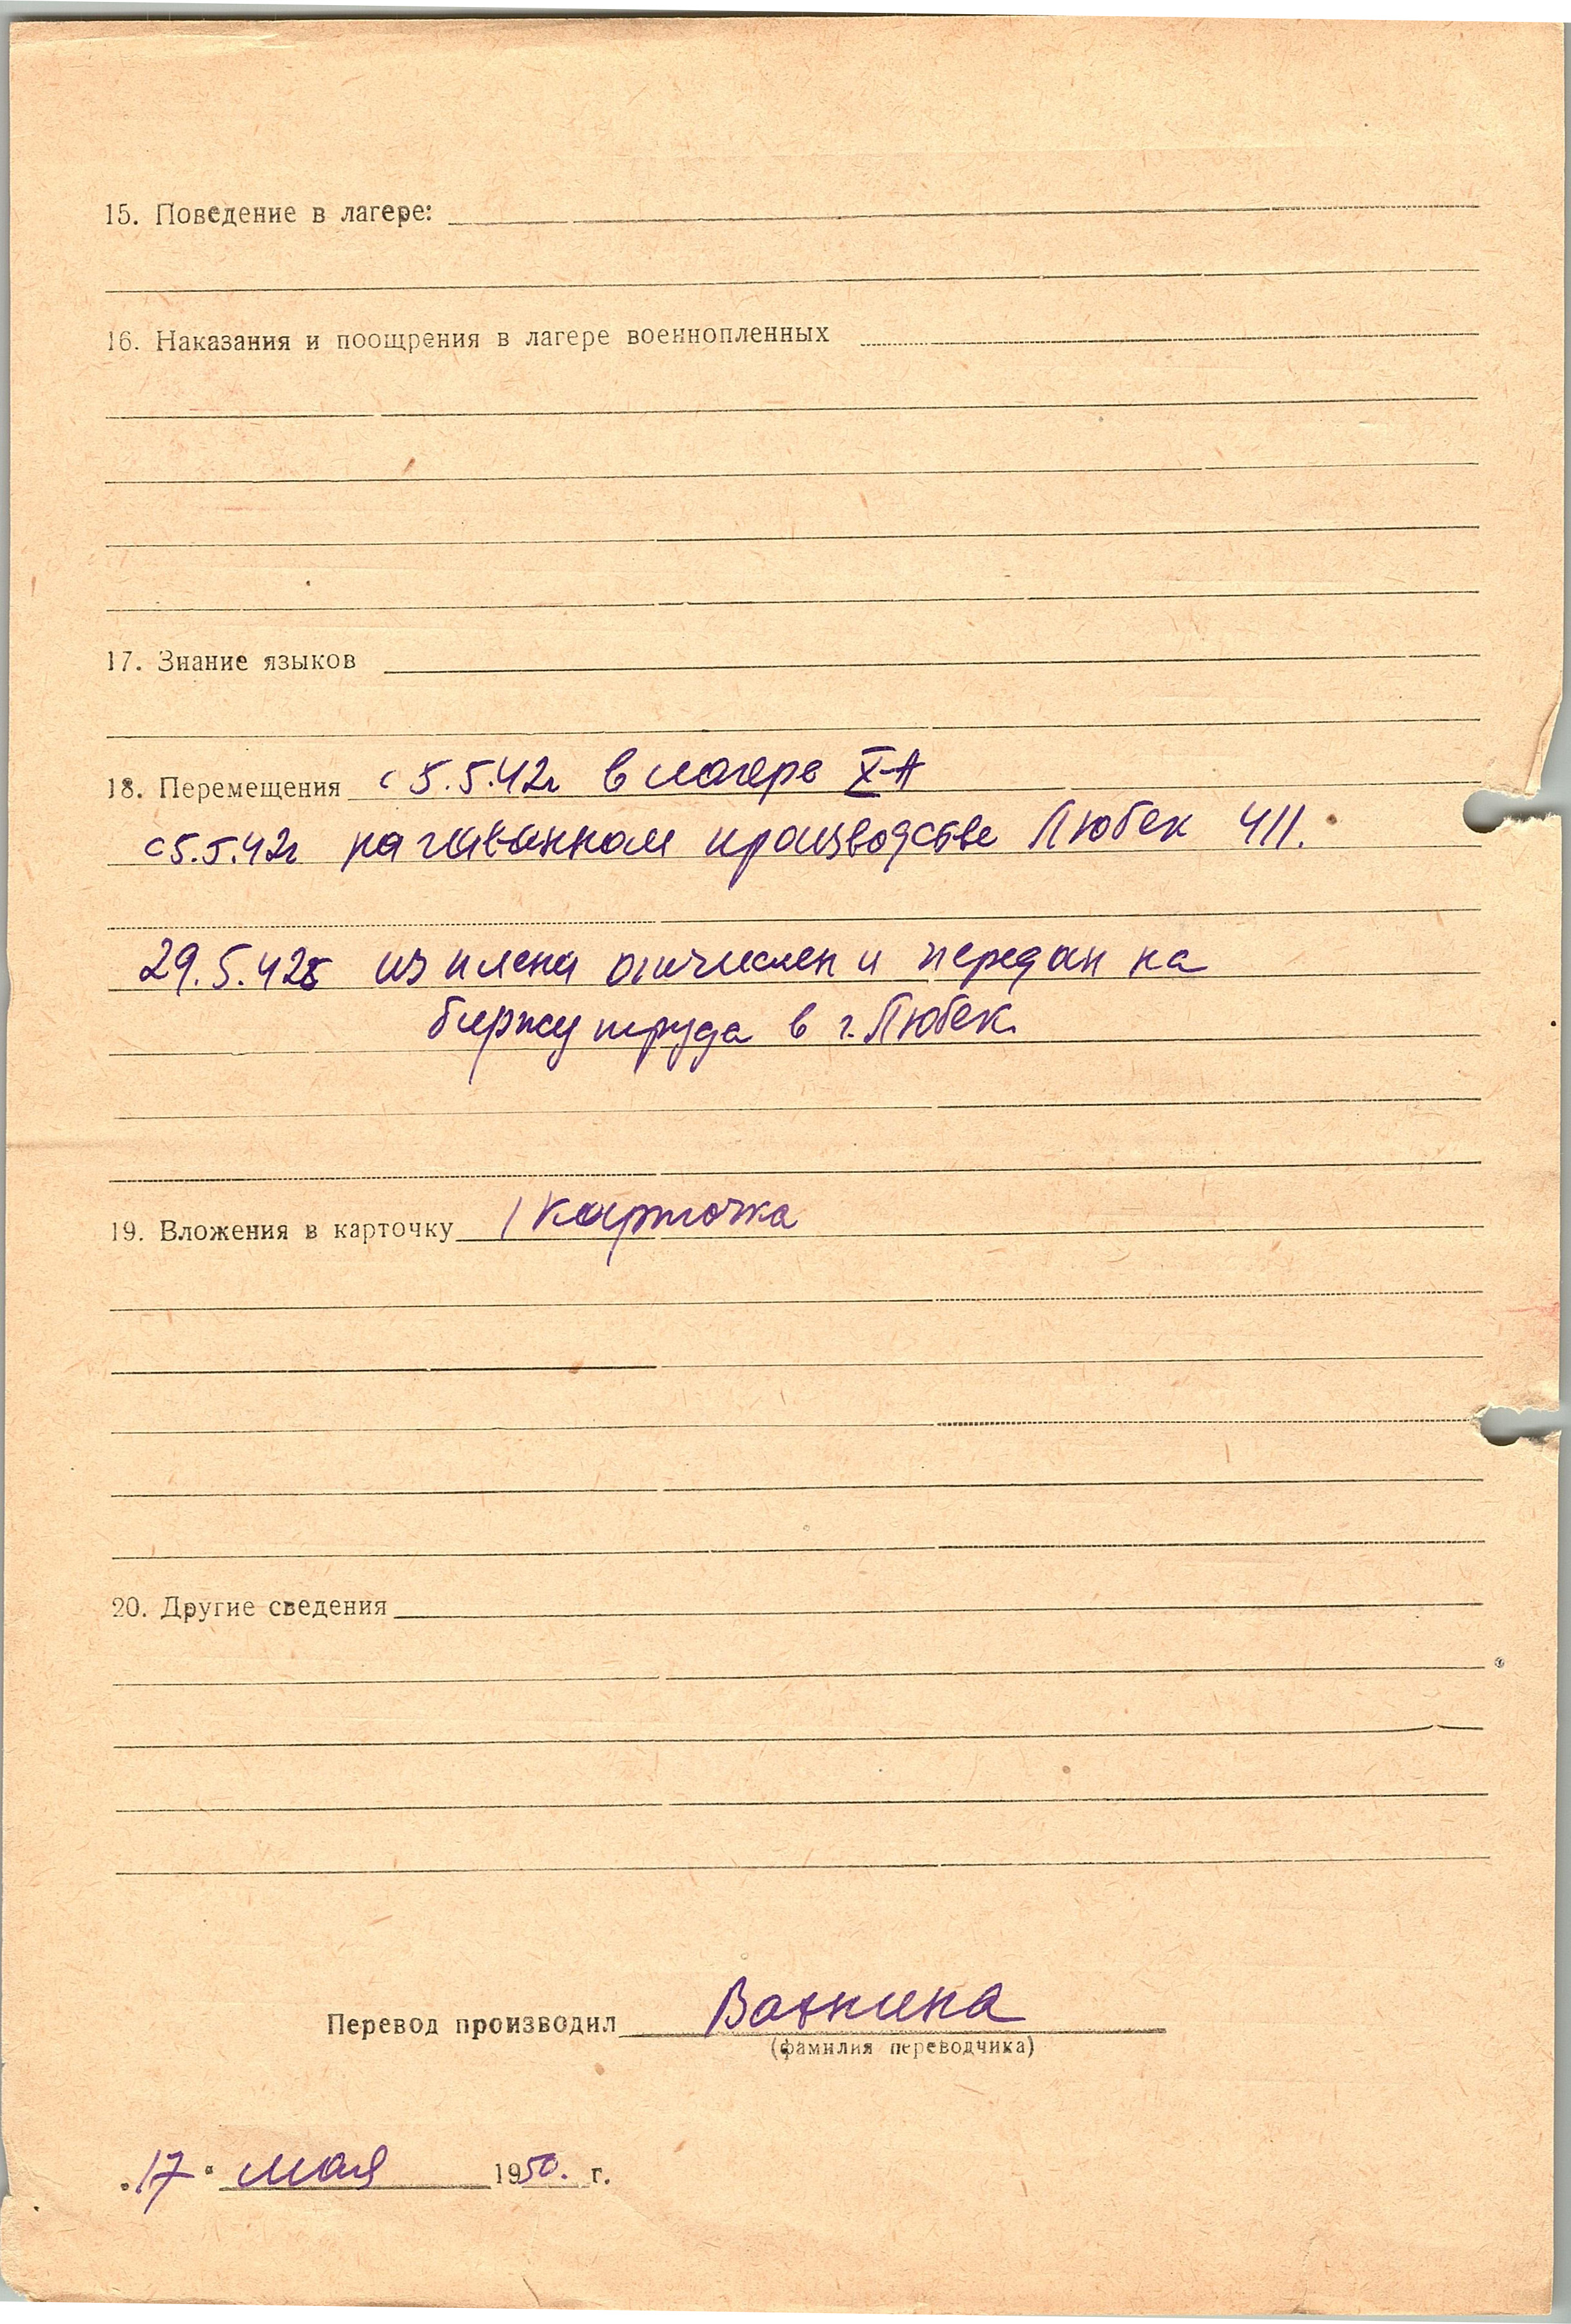 15. Поведение в лагере:
16. Наказания и поощрения в лагере военнопленных
17. Знание языков
18. Перемещения с 5.5.42г в лагере X-A
с 5.5.42г на производстве Любек 411.
29.5.42г из плена отчислен и передан на
биржу труда в г. Любек.
19. Вложения в карточку 1 карточка
20. Другие сведения
Перевод производил
(фамилия переводчика)
"17" мая 1950. г.